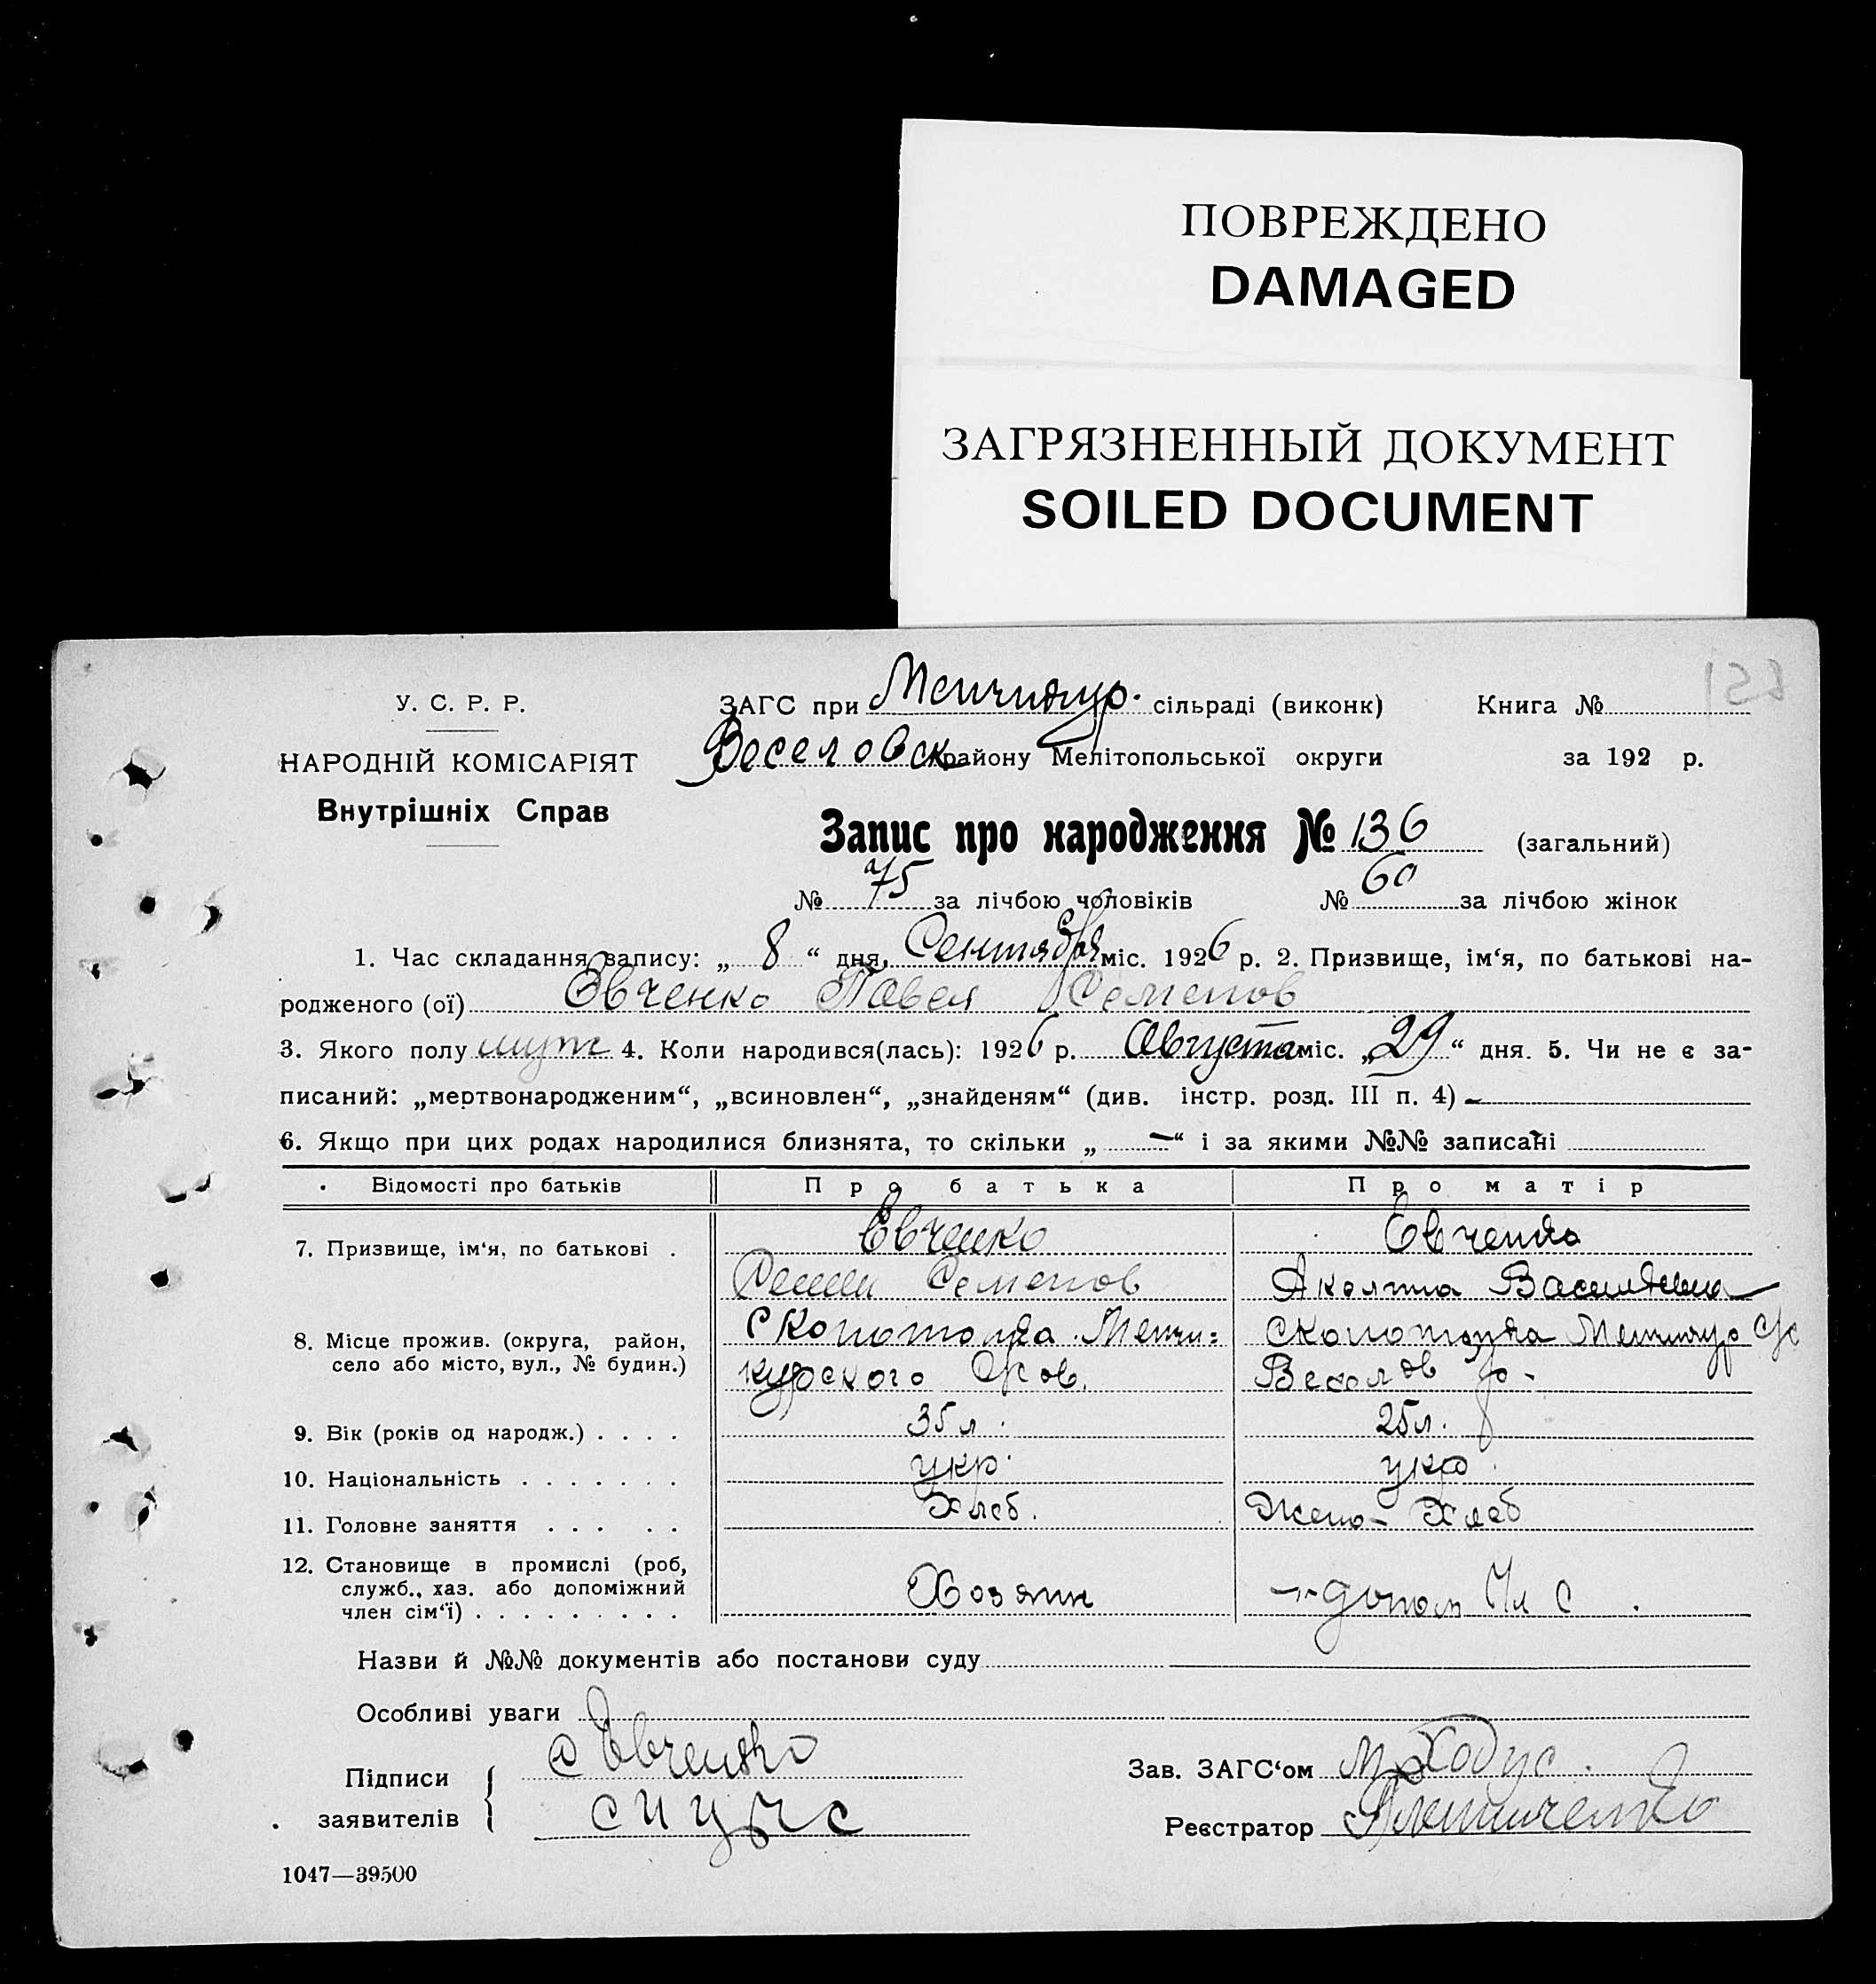 ПОВРЕЖДЕНО
DAMAGED
ЗАГРЯЗНЕННЫЙ ДОКУМЕНТ
SOILED DOCUMENT
У. С. Р. Р.
НАРОДНІЙ КОМІСАРІЯТ
Внутрішніх Справ
ЗАГС при сільраді (виконк) Книга №
Веселовск району Мелітопольської округи за 192 р.
Запис про народження № 136 (загальний)
№ 75 за лічбою чоловіків № 60 за лічбою жінок
1. Час складання запису: „ 8 “ дня, Сентября міс. 1926 р. 2. Призвище, ім‘я, по батькові на-
родженого (ої) Євченко Павел Семенов
3. Якого полу муж 4. Коли народився(лась): 1926 р. Августа міс. „29“ дня. 5. Чи не є за-
писаний: „мертвонародженим“, „всиновлен“, „знайденям“ (див. інстр. розд. III п. 4) —
6. Якщо при цих родах народилися близнята, то скільки „ — “ і за якими №№ записані
Відомості про батьків Про батька Про матір
7. Призвище, ім‘я, по батькові . Євченко Євченко
Семен Семенов Васильевна
8. Місце прожив. (округа, район,
село або місто, вул., № будин.)
Веселов р-
9. Вік (років од народж.) . . . . 35 л. 25 л.
10. Національність . . . . . . . укр. укр.
11. Головне заняття . . . . . Хлеб. Жена - Хлеб
12. Становище в промислі (роб,
служб., хаз. або допоміжний
член сім‘ї) . . . . . . . . . Хозяин допом Чл С
Назви й №№ документів або постанови суду
Особливі уваги
Підписи
заявителів
Євченко
Зав. ЗАГС‘ом М Ходус
Реєстратор
1047—39500